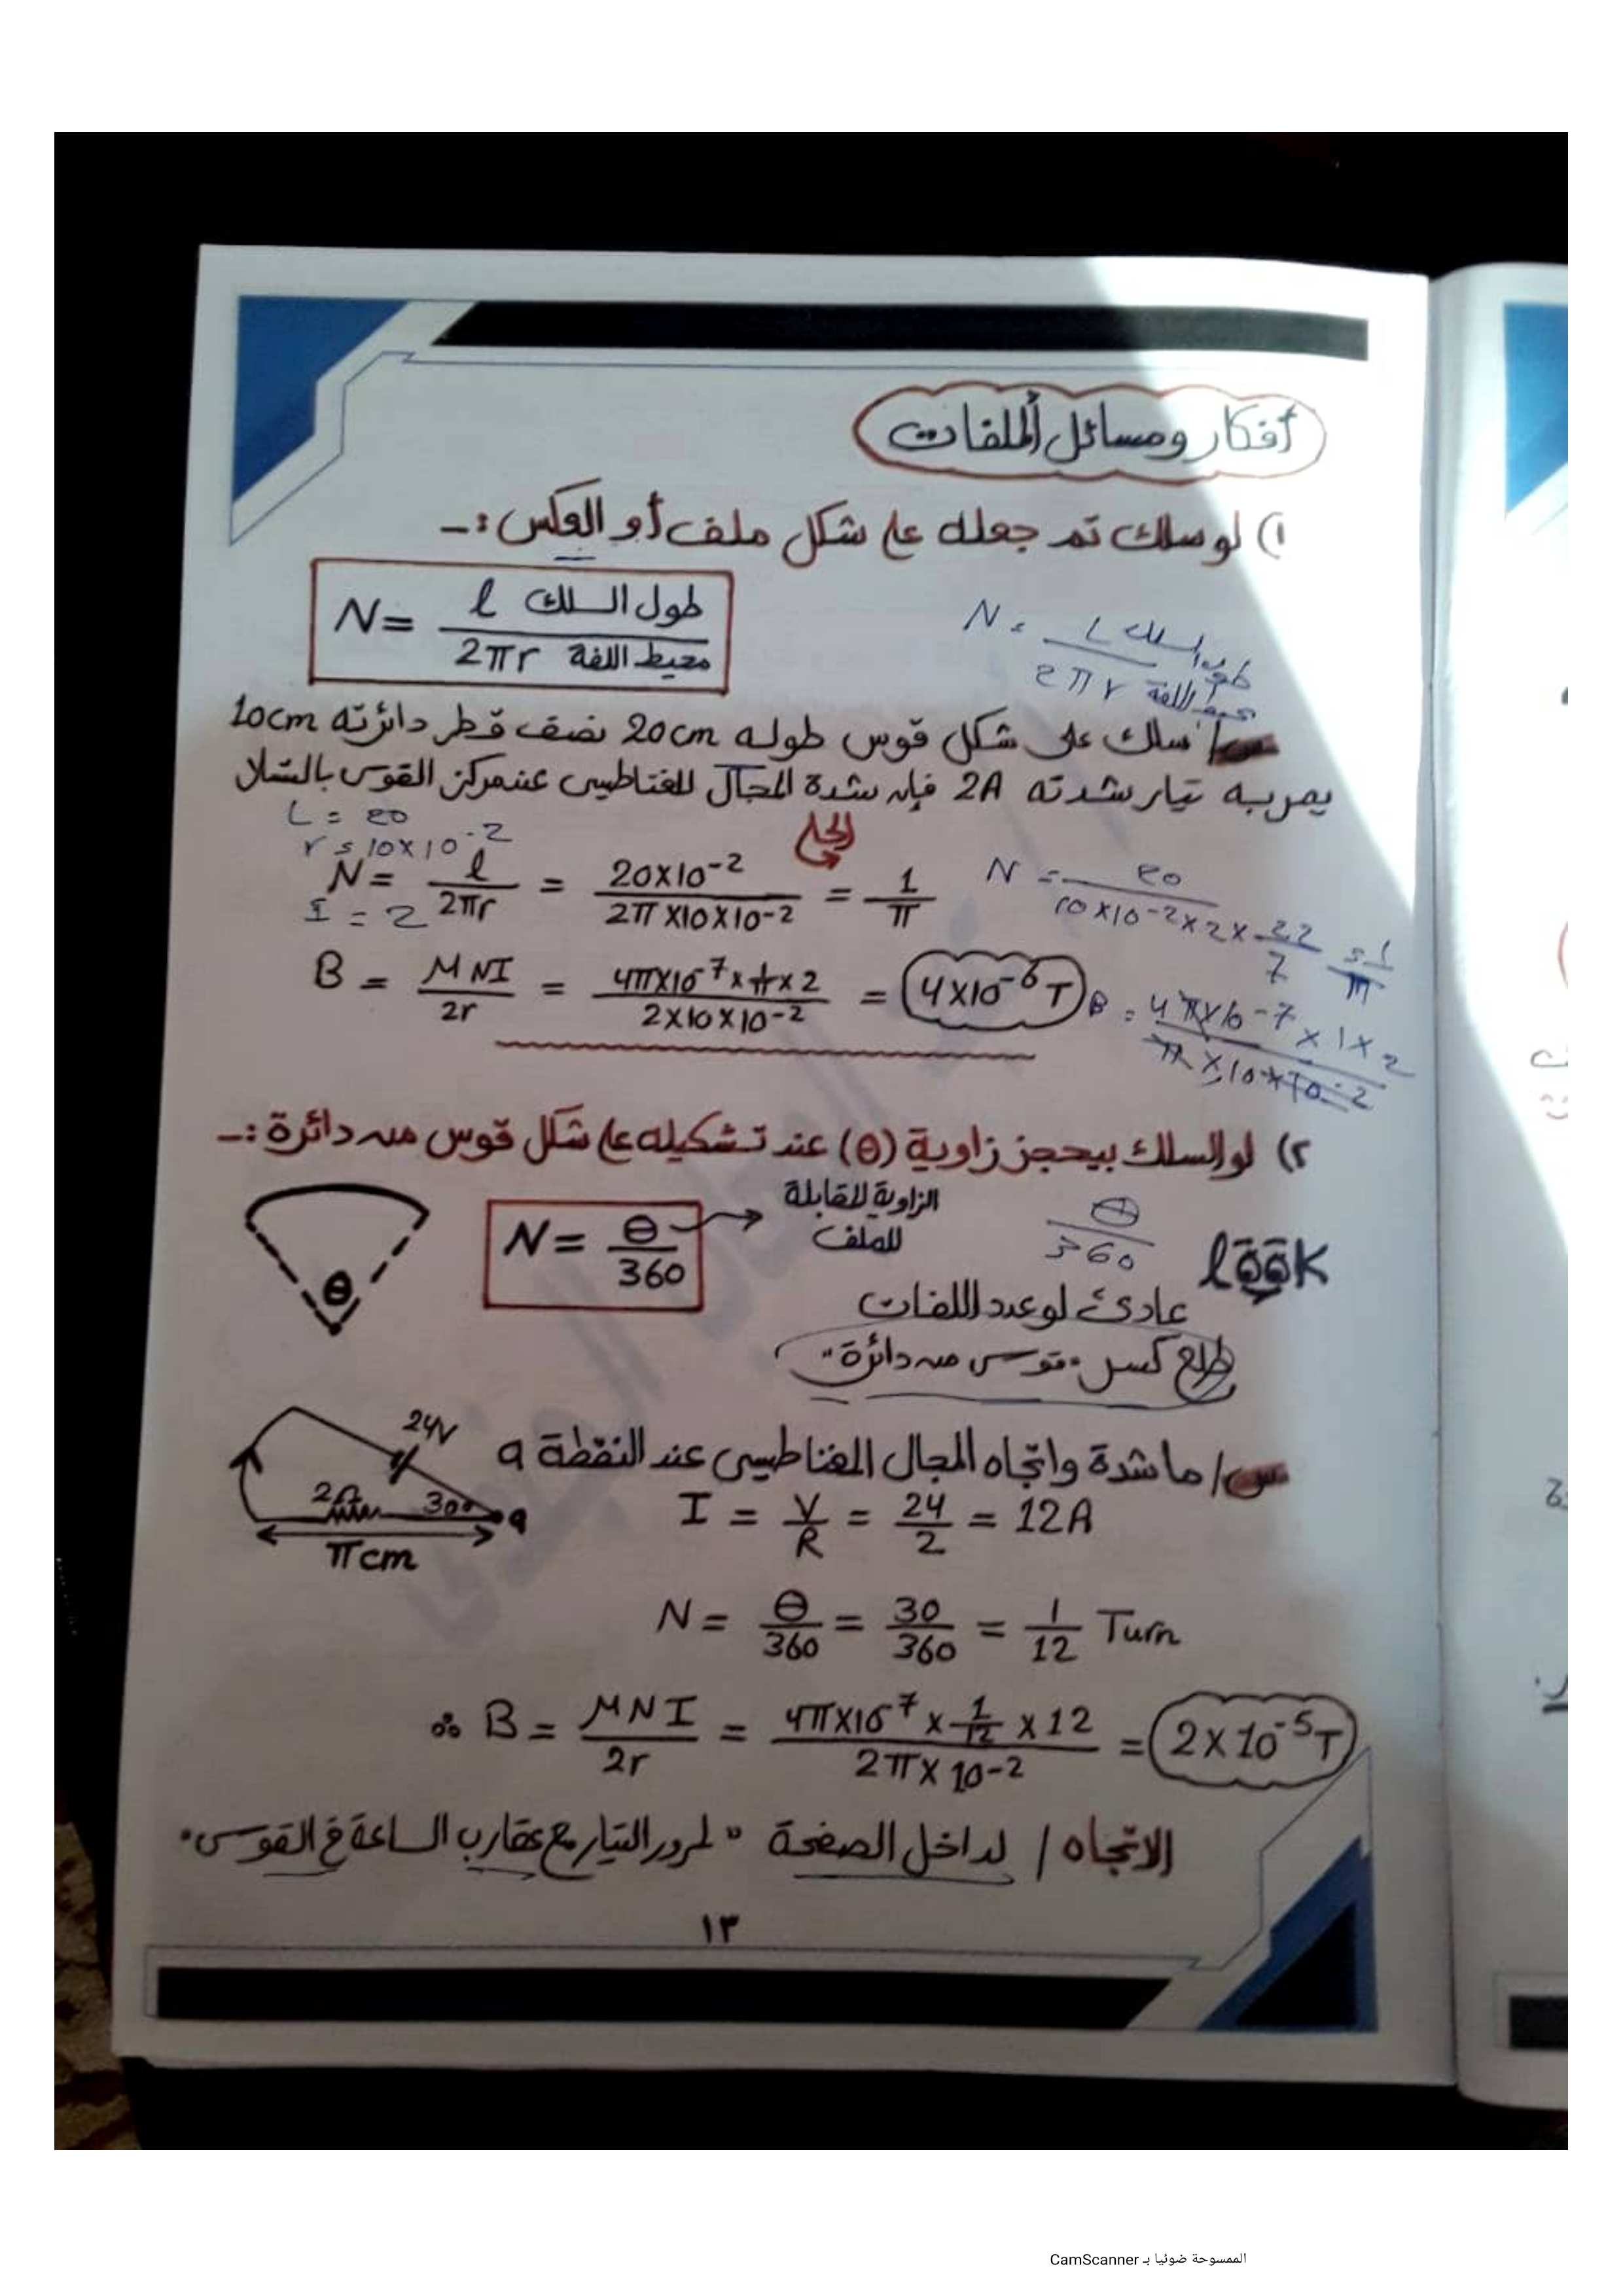 أفكار ومسائل الملفات
١) لو سلك تم جعله على شكل ملف أو العكس :-
N = طول السلك l / محيط اللفة 2πr
N = طول السلك L / محيط اللفة 2πr
س/ سلك على شكل قوس طوله 20cm نصف قطر دائرته 10cm
يمر به تيار شدته 2A فإن شدة المجال المغناطيسى عند مركز القوس بالتسلا
L = 20
r = 10×10-2
I = 2
الحل
N = l / 2πr = 20×10-2 / 2π×10×10-2 = 1/π
N = 20 / 10×10-2×2×22/7 = 1/π
B = μNI / 2r = 4π×10-7×1/π×2 / 2×10×10-2 = 4×10-6 T
B = 4π×10-7×1×2 / π×10×10-2
٢) لو السلك بيحجز زاوية (θ) عند تشكيله على شكل قوس من دائرة :-
θ
N = θ/360
الزاوية المقابلة
للملف
θ/360
look
عادى لو عدد اللفات
طلع كسر "قوس من دائرة"
س/ ما شدة واتجاه المجال المغناطيسى عند النقطة a
24V
2Ω
30°
a
πcm
I = V/R = 24/2 = 12A
N = θ/360 = 30/360 = 1/12 Turn
∴ B = μNI / 2r = 4π×10-7 × 1/12 × 12 / 2π×10-2 = 2×10-5 T
الاتجاه / لداخل الصفحة "لمرور التيار مع عقارب الساعة فى القوس"
١٣
الممسوحة ضوئيا بـ CamScanner